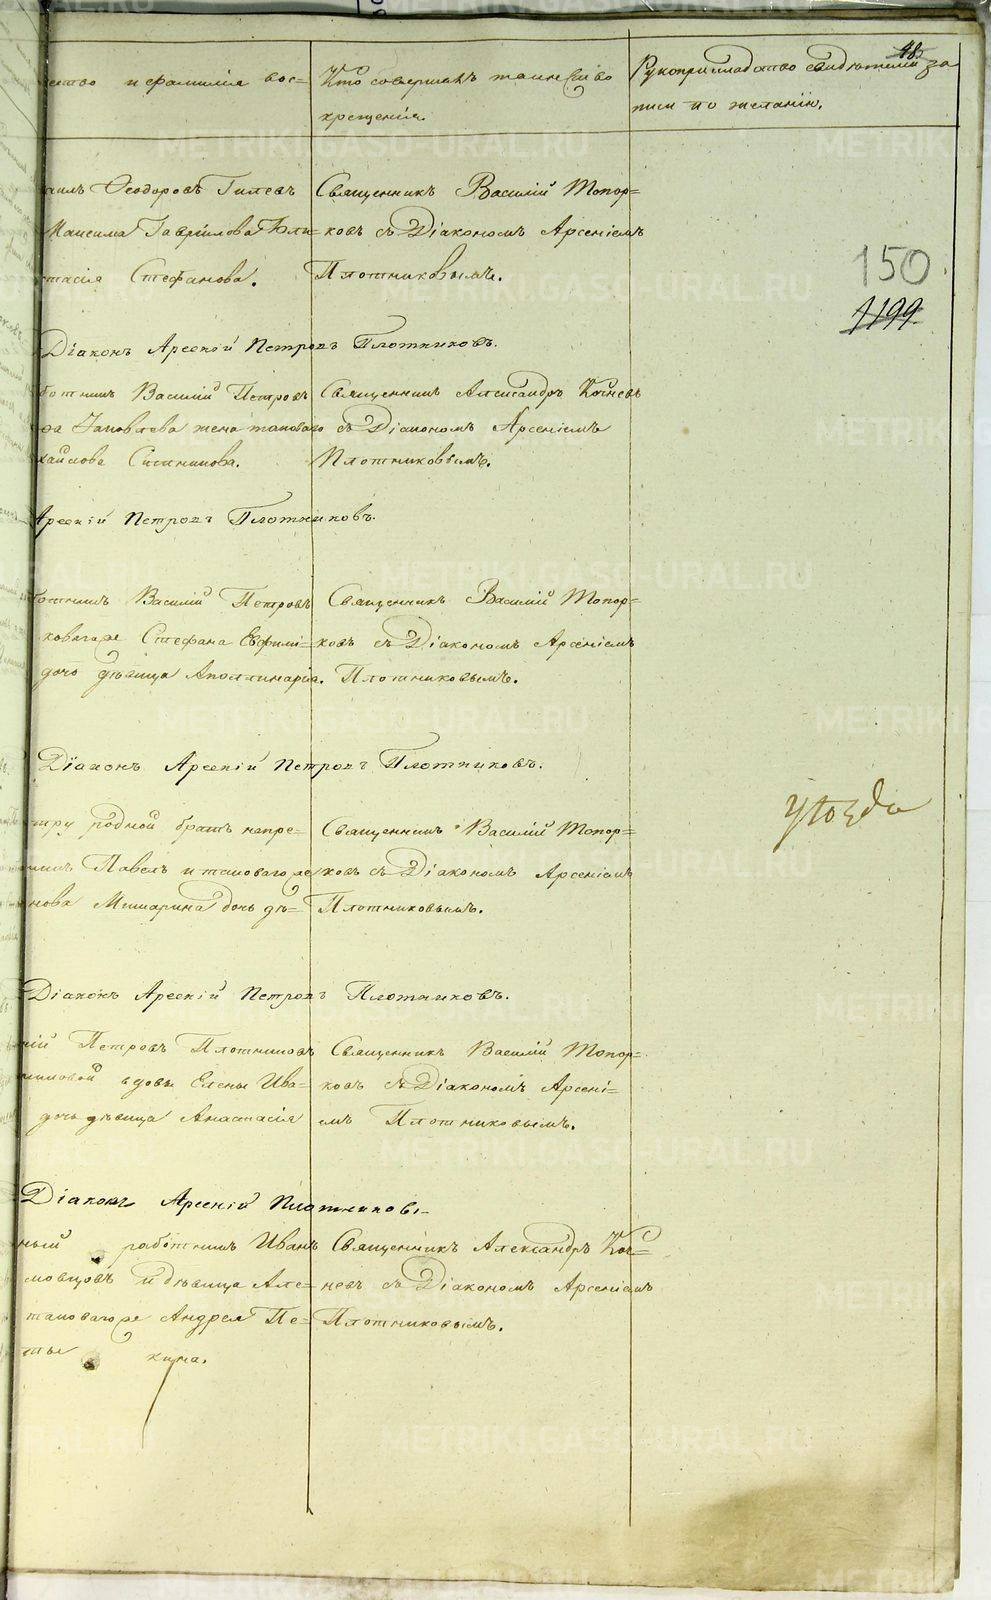 48
ество и фамилія вос-
Кто совершалъ таинство
крещенія.
Рукоприкладство свидѣтелей за
писи по желанію.
аилъ Ѳеодоровъ Гилевъ
Максима Гаврилова
тасія Стефанова.
Священникъ Василій Топор=
ковъ съ Діакономъ Арсеніемъ
Плотниковымъ.
150
1199
Діаконъ Арсеній Петровъ Плотниковъ.
ботникъ Василій Петровъ
Яковлева жена таковаго
хайлова Ситникова.
Священникъ Александръ Кочневъ
съ Діакономъ Арсеніемъ
Плотниковымъ.
Арсеній Петровъ Плотниковъ.
ботникъ Василій Петровъ
коваго же Стефана Евфимі=
дочь дѣвица Аполлинарія.
Священникъ Василій Топор=
ковъ съ Діакономъ Арсеніемъ
Плотниковымъ.
Діаконъ Арсеній Петровъ Плотниковъ.
тру родной братъ непре=
никъ Павелъ и таковаго же
нова Мишарина дочь дѣ=
Священникъ Василій Топор=
ковъ съ Діакономъ Арсеніемъ
Плотниковымъ.
уѣзда
Діаконъ Арсеній Петровъ Плотниковъ.
ній Петровъ Плотниковъ
никовой вдовы Елены Ива=
дочь дѣвица Анастасія
Священникъ Василій Топор=
ковъ съ Діакономъ Арсені=
емъ Плотниковымъ.
Діаконъ Арсеній Плотниковъ
ный работникъ Иванъ
мовцовъ и дѣвица Але=
таковаго же Андрея Пе=
ты кина.
Священникъ Александръ Коч=
невъ съ Діакономъ Арсеніемъ
Плотниковымъ.
METRIKI.GASO-URAL.RU